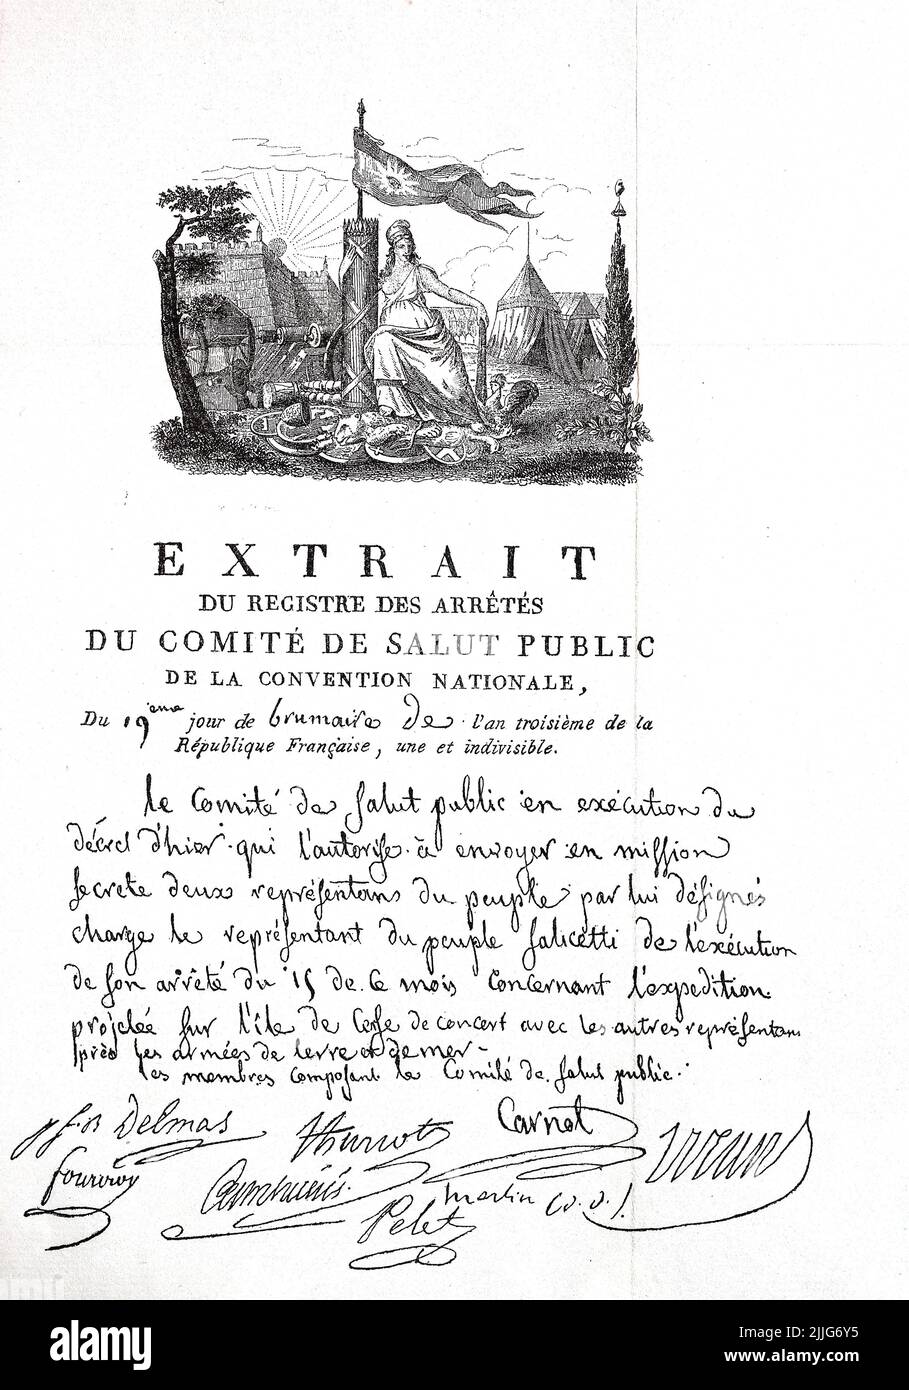 EXTRAIT
DU REGISTRE DES ARRÊTÉS
DU COMITÉ DE SALUT PUBLIC
DE LA CONVENTION NATIONALE,
Du 19ème jour de brumaire de l'an troisième de la
République Française, une et indivisible.
le Comité de Salut public en exécution du
décret d'hier qui l'autorise à envoyer en mission
secrete deux représentans du peuple par lui désignés
charge le représentant du peuple Salicetti de l'exécution
de son arrêté du 15 de ce mois concernant l'expedition
projetée sur l'île de Corse de concert avec les autres représentans
près les armées de terre et de mer
les membres composant le Comité de Salut public.
J.f.B Delmas Thuriot Carnot
fourcroy Cambacérès merlin (d. d.)
Pelet
alamy
Image ID: 2JJG6Y5
www.alamy.com